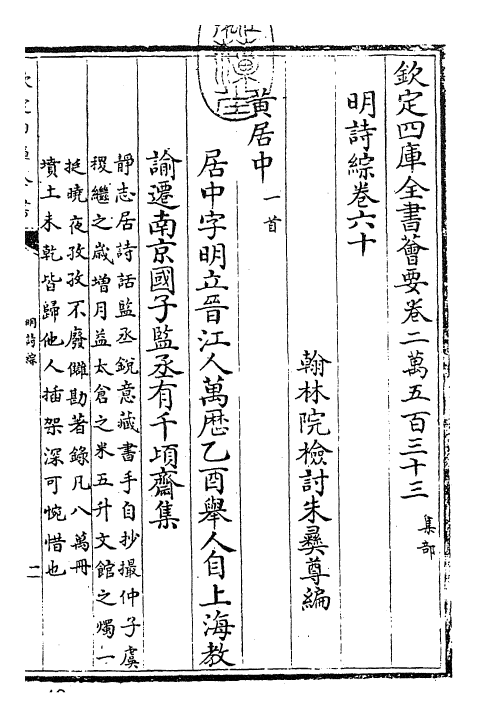 欽定四庫全書薈要卷二萬五百三十三 集部
明詩綜卷六十
翰林院檢討朱彝尊編
黃居中 一首
居中字明立晉江人萬歴乙酉舉人自上海教
諭遷南京國子監丞有千頃齋集
静志居詩話監丞銳意藏書手自抄撮仲子虞
稷繼之歲增月益太倉之米五升文館之燭一
挺曉夜孜孜不廢讎勘著錄凡八萬冊
墳土未乾皆歸他人插架深可惋惜也
明詩綜
二